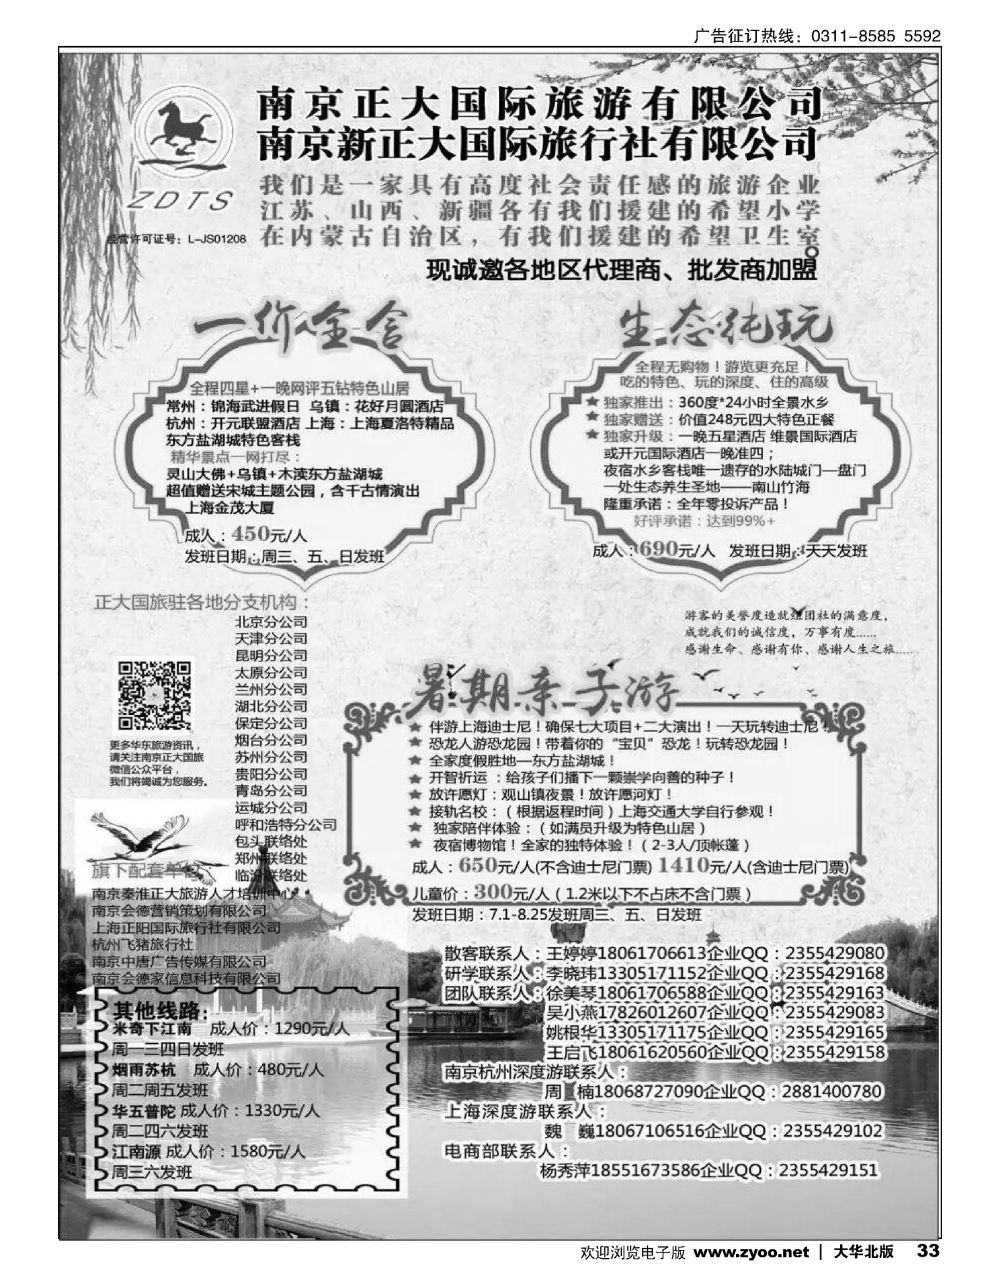 广告征订热线：0311-8585 5592
南京正大国际旅游有限公司
南京新正大国际旅行社有限公司
ZDTS
经营许可证号：L-JS01208
我们是一家具有高度社会责任感的旅游企业
江苏、山西、新疆各有我们援建的希望小学
在内蒙古自治区，有我们援建的希望卫生室。
现诚邀各地区代理商、批发商加盟
一价全含
全程四星+一晚网评五钻特色山居
常州：锦海武进假日 乌镇：花好月圆酒店
杭州：开元联盟酒店 上海：上海夏洛特精品
东方盐湖城特色客栈
精华景点一网打尽：
灵山大佛+乌镇+木渎东方盐湖城
超值赠送宋城主题公园，含千古情演出
上海金茂大厦
成人：450元/人
发班日期：周三、五、日发班
生态纯玩
全程无购物！游览更充足！
吃的特色、玩的深度、住的高级
★ 独家推出：360度*24小时全景水乡
★ 独家赠送：价值248元四大特色正餐
★ 独家升级：一晚五星酒店 维景国际酒店
或开元国际酒店一晚准四；
夜宿水乡客栈唯一遗存的水陆城门—盘门
一处生态养生圣地——南山竹海
隆重承诺：全年零投诉产品！
好评承诺：达到99%+
成人：690元/人 发班日期：天天发班
正大国旅驻各地分支机构：
北京分公司
天津分公司
昆明分公司
太原分公司
兰州分公司
湖北分公司
保定分公司
烟台分公司
苏州分公司
贵阳分公司
青岛分公司
运城分公司
呼和浩特分公司
包头联络处
郑州联络处
临汾联络处
更多华东旅游资讯，
请关注南京正大国旅
微信公众平台，
我们将竭诚为您服务。
游客的美誉度造就组团社的满意度，
成就我们的诚信度，万事有度......
感谢生命、感谢有你、感谢人生之旅.....
暑期亲子游
★ 伴游上海迪士尼！确保七大项目+二大演出！一天玩转迪士尼！
★ 恐龙人游恐龙园！带着你的“宝贝”恐龙！玩转恐龙园！
★ 全家度假胜地—东方盐湖城！
★ 开智祈运：给孩子们播下一颗崇学向善的种子！
★ 放许愿灯：观山镇夜景！放许愿河灯！
★ 接轨名校：（根据返程时间）上海交通大学自行参观！
★ 独家陪伴体验：（如满员升级为特色山居）
★ 夜宿博物馆！全家的独特体验！（2-3人/顶帐蓬）
成人：650元/人(不含迪士尼门票) 1410元/人(含迪士尼门票)
儿童价：300元/人（1.2米以下不占床不含门票）
发班日期：7.1-8.25发班周三、五、日发班
旗下配套单位
南京秦淮正大旅游人才培训中心
南京会德营销策划有限公司
上海正阳国际旅行社有限公司
杭州飞猪旅行社
南京中唐广告传媒有限公司
南京会德家信息科技有限公司
其他线路：
米奇下江南 成人价：1290元/人
周一三四日发班
烟雨苏杭 成人价：480元/人
周二周五发班
华五普陀 成人价：1330元/人
周二四六发班
江南源 成人价：1580元/人
周三六发班
散客联系人：王婷婷18061706613企业QQ：2355429080
研学联系人：李晓玮13305171152企业QQ：2355429168
团队联系人：徐美琴18061706588企业QQ：2355429163
吴小燕17826012607企业QQ：2355429083
姚根华13305171175企业QQ：2355429165
王启飞18061620560企业QQ：2355429158
南京杭州深度游联系人：
周 楠18068727090企业QQ：2881400780
上海深度游联系人：
魏 巍18067106516企业QQ：2355429102
电商部联系人：
杨秀萍18551673586企业QQ：2355429151
欢迎浏览电子版 www.zyoo.net | 大华北版 33